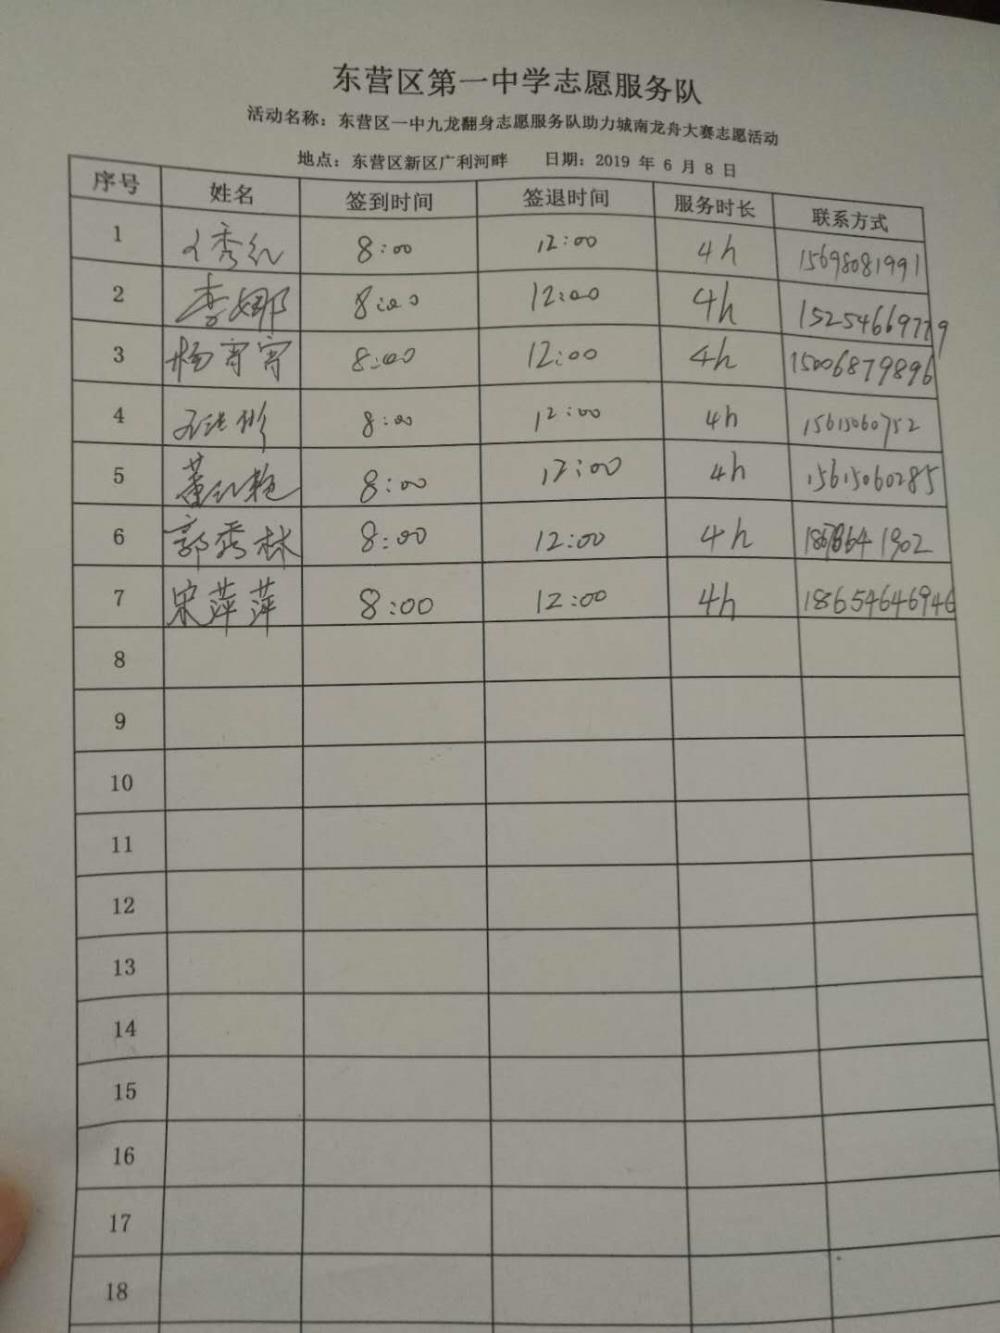 东营区第一中学志愿服务队
活动名称：东营区一中九龙翻身志愿服务队助力城南龙舟大赛志愿活动
地点：东营区新区广利河畔 日期：2019 年 6 月 8 日
序号 姓名 签到时间 签退时间 服务时长 联系方式
1 秀红 8:00 12:00 4h 15698081991
2 李娜 8:00 12:00 4h
3 杨宵宵 8:00 12:00 4h 15006879896
4 8:00 12:00 4h 15615060752
5 董红艳 8:00 12:00 4h 15615060285
6 郭秀林 8:00 12:00 4h
7 宋萍萍 8:00 12:00 4h 18654646946
8
9
10
11
12
13
14
15
16
17
18